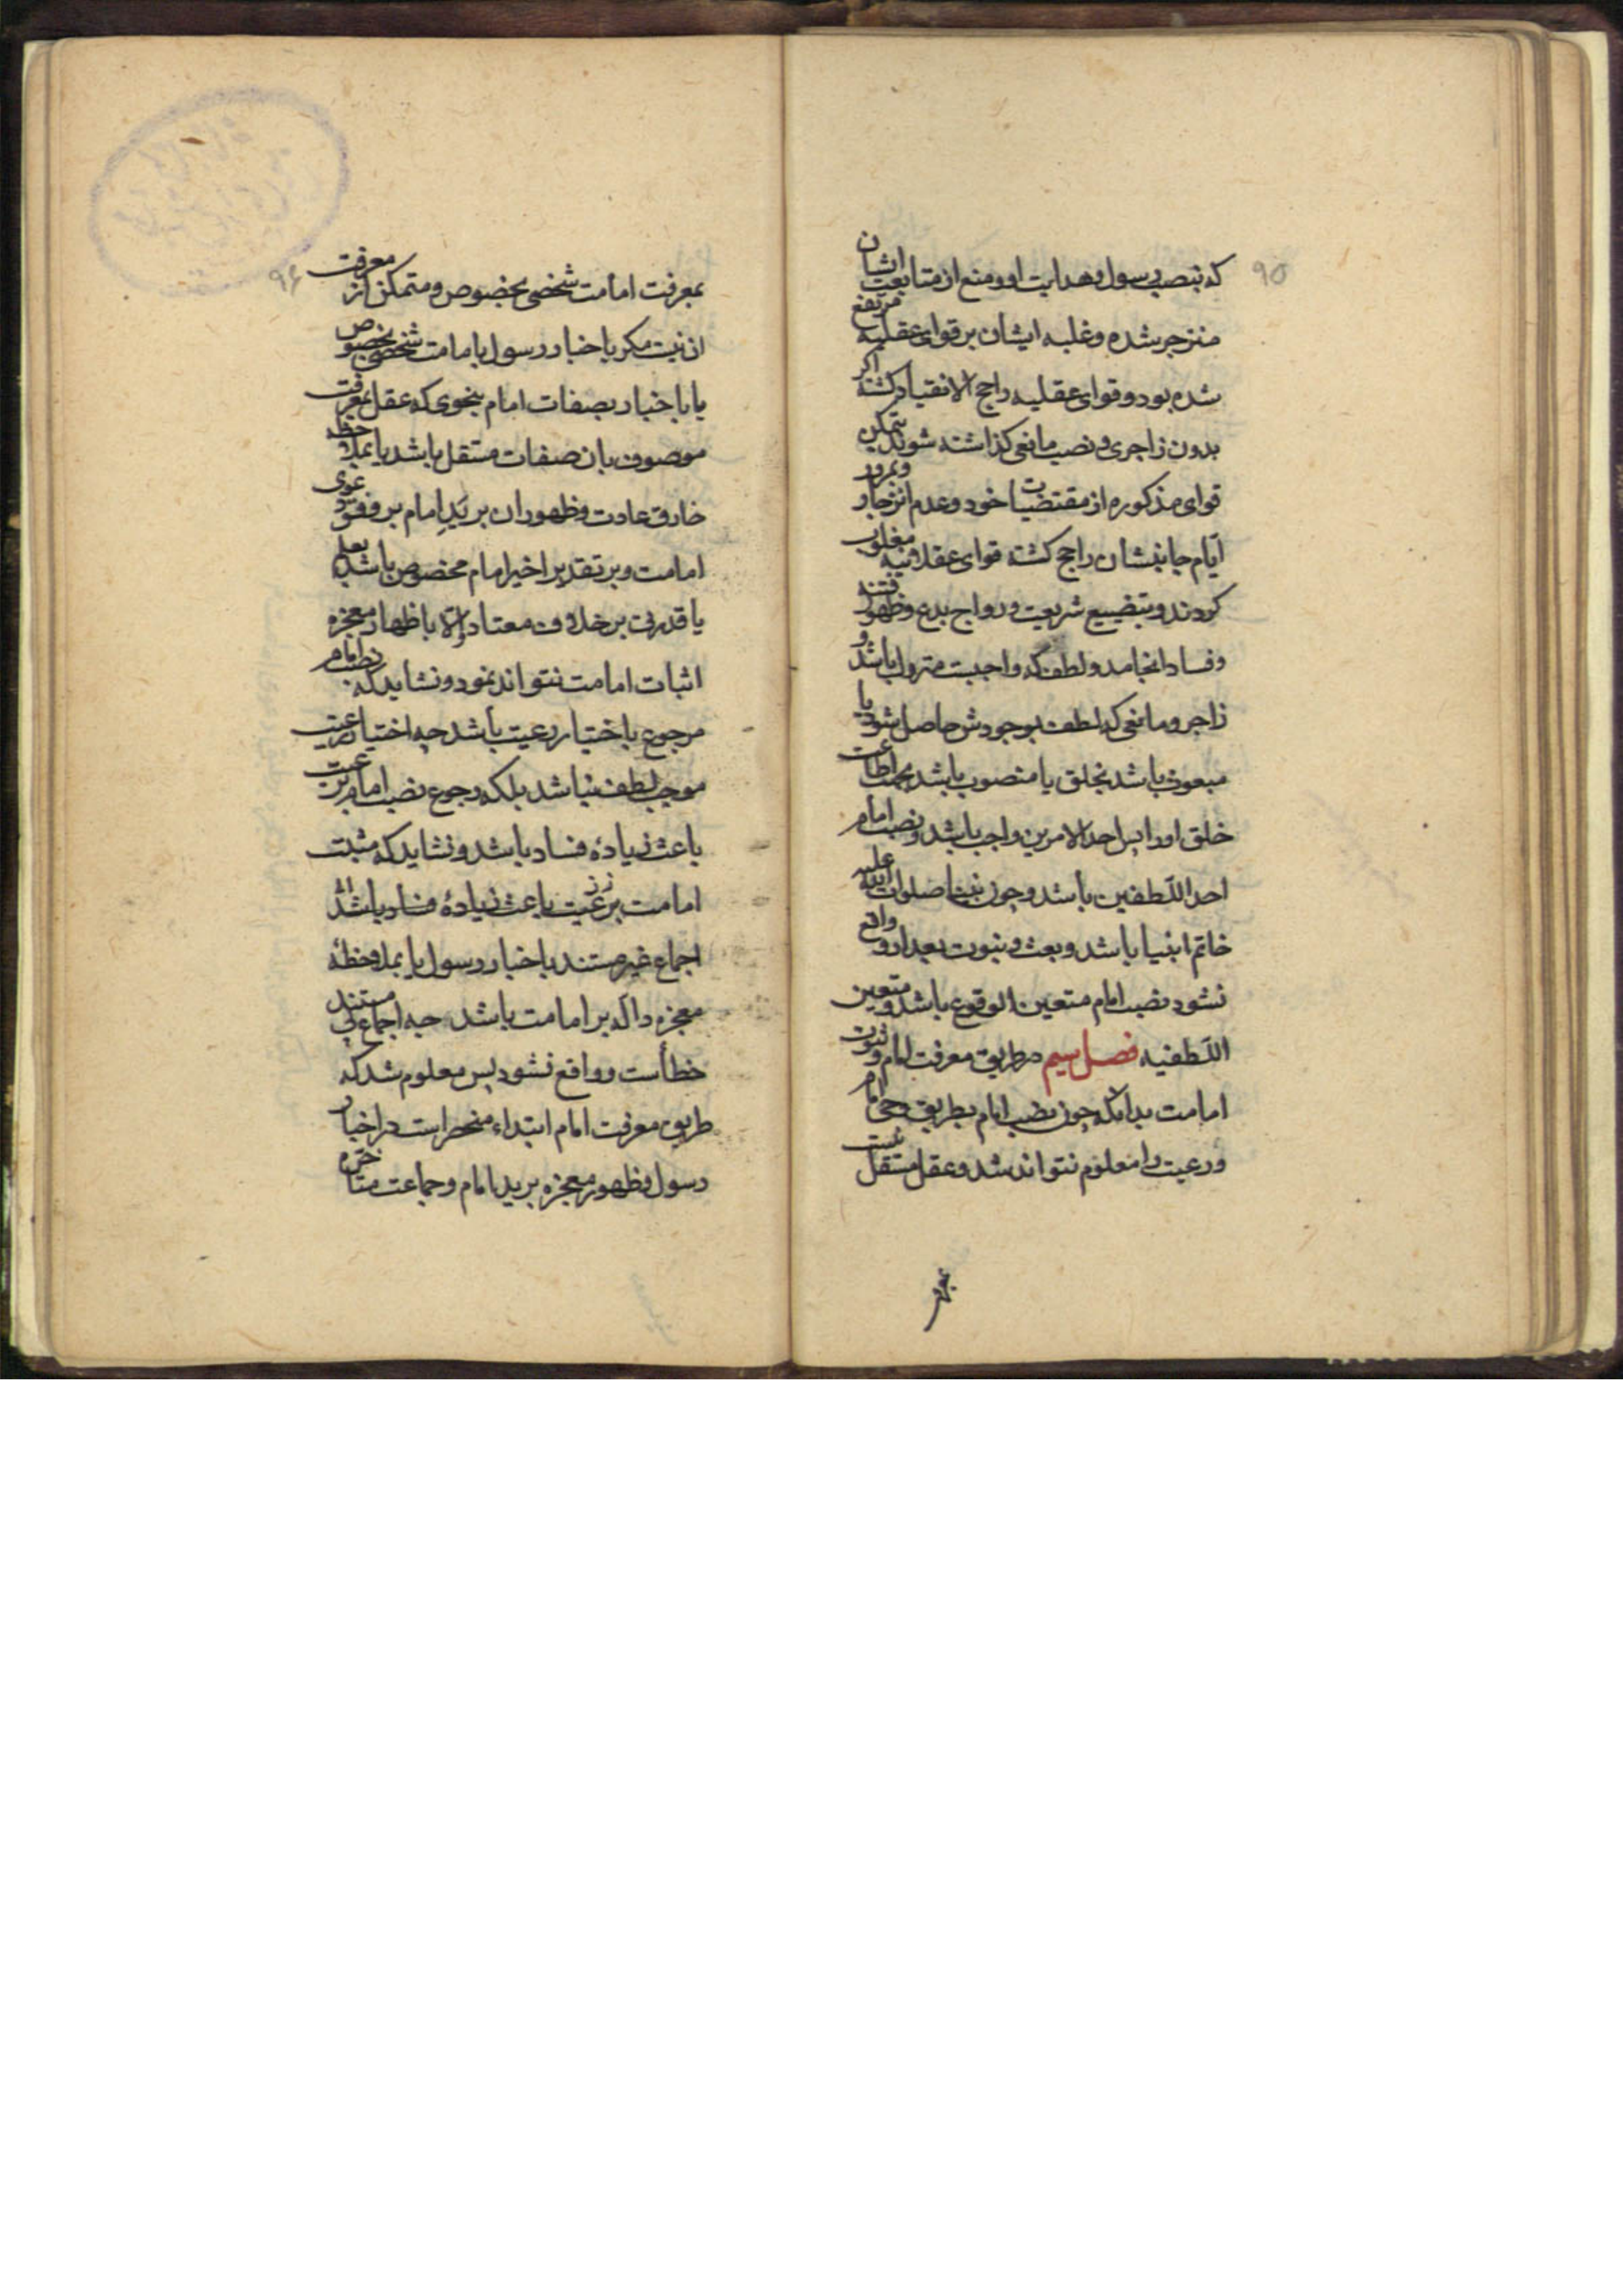 ۹۵
که بنصب رسول و هدایت او و منع از متابعت ایشان
منزجر شده و غلبه ایشان بر قوای عقلیه مرتفع
شده بود و قوای عقلیه راجح الانقیاد گشته اگر
بدون زاجری و نصب مانعی گذاشته شوند بتمکن
قوای مذکوره از مقتضیات خود و عدم انزجار و بمرور
ایام جانبشان راجح گشته قوای عقلانیه مغلوب
گردند و بتضییع شریعت و رواج بدع و ظهور فتنه
و فساد انجامد و لطف که واجبست متروک باشد و
زاجر و مانعی که لطف بوجودش حاصل شود یا
مبعوث باشد بخلق یا منصوب باشد بجهت اطاعت
خلق او را پس احد الامرین واجب باشد و نصب امام
احد اللطفین باشد و چون نبینا صلوات الله علیه
خاتم انبیا باشد و بعث و نبوت بعد از او واقع
نشود نصب امام متعین الوقوع باشد و متعین
اللطفیه فصل سیم در طریق معرفت امام و ثبوت
امامت بدانکه چون نصب امام بطریق وحی امام
و رعیت را معلوم نتواند شد و عقل مستقل نیست
بمعرفت
۹۶
بمعرفت امامت شخصی بخصوص و متمکن از معرفت
آن نیست مگر باخبار رسول بامامت شخصی بخصوص
یا باخبار بصفات امام بنحوی که عقل بمعرفت
موصوف بان صفات مستقل باشد یا بملاحظه
خارق عادت و ظهور آن بر ید امام بر وفق دعوی
امامت و بر تقدیر اخیر امام مخصوص باشد بعلم
یا قدرتی بر خلاف معتاد و الا باظهار معجزه
اثبات امامت نتواند نمود و نشاید که نصب امام
مرجوع باختیار رعیت باشد چه اختیار رعیت
موجب لطف نباشد بلکه رجوع نصب امام برعیت
باعث زیادهٔ فساد باشد و نشاید که مثبت
امامت بر رعیت باعث زیادهٔ فساد باشد
اجماع غیر مستند باخبار رسول یا بملاحظهٔ
معجزه داله بر امامت باشد چه اجماع بی مستند
خطأست و واقع نشود پس معلوم شد که
طریق معرفت امام ابتداء منحصر است در اخبار
رسول و ظهور معجزه بر ید امام و جماعت متأخره